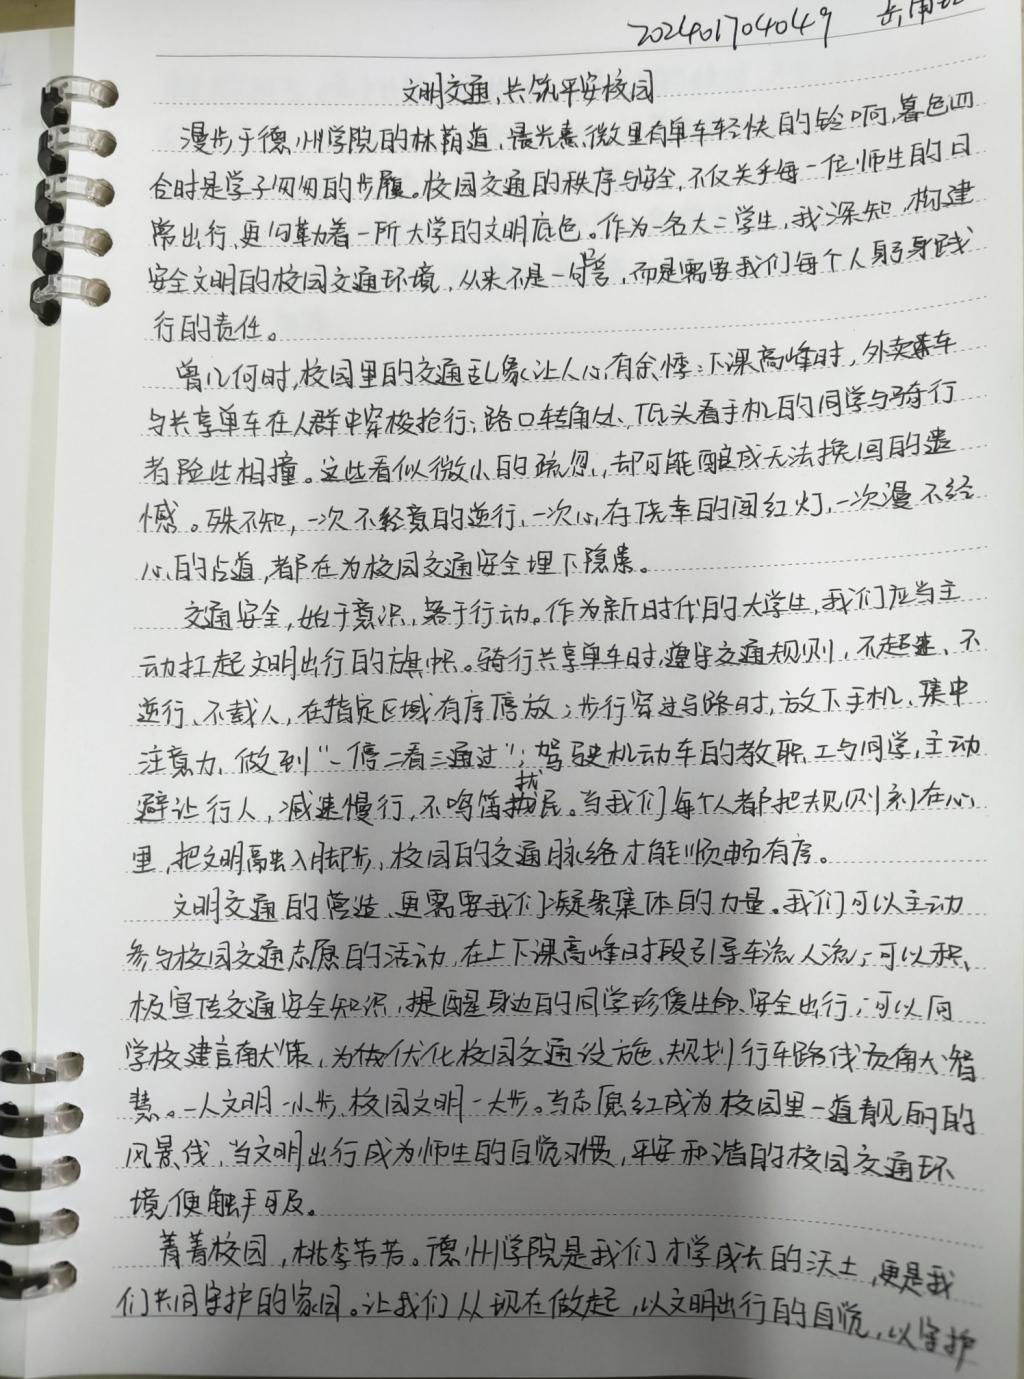 202401704049
文明交通,共筑平安校园
漫步于德州学院的林荫道,晨光熹微里有单车轻快的铃响,暮色四
合时是学子匆匆的步履。校园交通的秩序与安全,不仅关乎每一位师生的日
常出行,更勾勒着一所大学的文明底色。作为一名大二学生,我深知,构建
安全文明的校园交通环境,从来不是一句口号,而是需要我们每个人躬身践
行的责任。
曾几何时,校园里的交通乱象让人心有余悸:下课高峰时,外卖车
与共享单车在人群中穿梭抢行;路口转角处、低头看手机的同学与骑行
者险些相撞。这些看似微小的疏忽,却可能酿成无法挽回的遗
憾。殊不知,一次不经意的逆行,一次心存侥幸的闯红灯,一次漫不经
心的占道,都在为校园交通安全埋下隐患。
交通安全,始于意识,落于行动。作为新时代的大学生,我们应当主
动扛起文明出行的旗帜。骑行共享单车时,遵守交通规则,不超速、不
逆行、不载人,在指定区域有序停放;步行穿过马路时,放下手机、集中
注意力、做到“一停二看三通过”;驾驶机动车的教职工与同学,主动
避让行人,减速慢行,不鸣笛扰民。当我们每个人都把规则刻在心
里,把文明融入脚步,校园的交通脉络才能顺畅有序。
文明交通的营造,更需要我们凝聚集体的力量。我们可以主动
参与校园交通志愿的活动,在上下课高峰时段引导车流人流;可以积
极宣传交通安全知识,提醒身边的同学珍爱生命、安全出行;可以向
学校建言献策,为优化校园交通设施、规划行车路线贡献智
慧。一人文明一小步,校园文明一大步。当志愿红成为校园里一道靓丽的
风景线,当文明出行成为师生的自觉习惯,平安和谐的校园交通环
境便触手可及。
菁菁校园,桃李芳芳。德州学院是我们求学成长的沃土,更是我
们共同守护的家园。让我们从现在做起,以文明出行的自觉,以守护